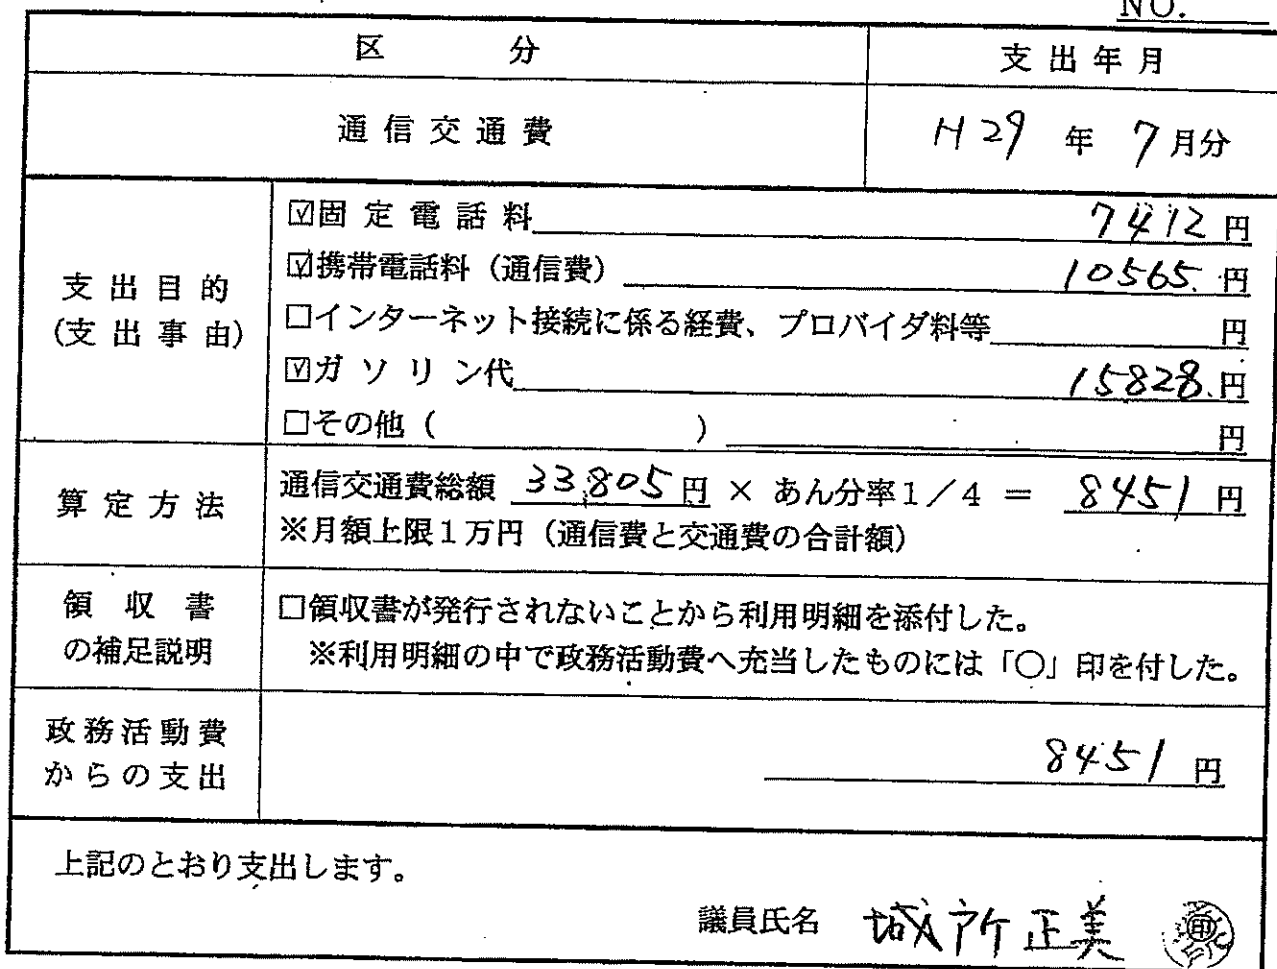 NO.
区 分 支出年月
通信交通費 H29年 7月分
支出目的
(支出事由)
☑固定電話料 7412円
☑携帯電話料（通信費） 10565円
□インターネット接続に係る経費、プロバイダ料等 円
☑ガソリン代 15828円
□その他（ ） 円
算定方法
通信交通費総額 33,805円 × あん分率1／4 ＝ 8451円
※月額上限1万円（通信費と交通費の合計額）
領収書
の補足説明
□領収書が発行されないことから利用明細を添付した。
※利用明細の中で政務活動費へ充当したものには「○」印を付した。
政務活動費
からの支出
8451円
上記のとおり支出します。
議員氏名 城所正美